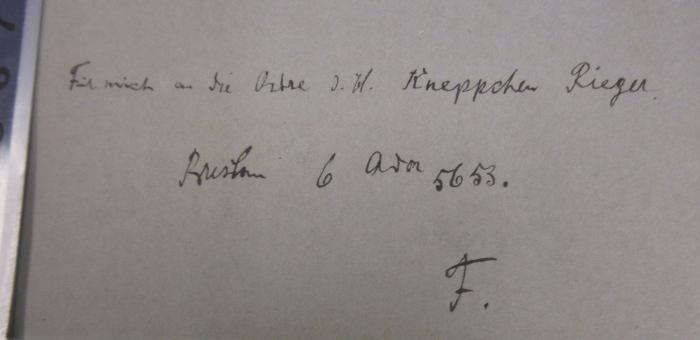 Für mich an die Ordre d. H. Kneppchen Rieger.
Breslau 6 Adar 5653.
F.